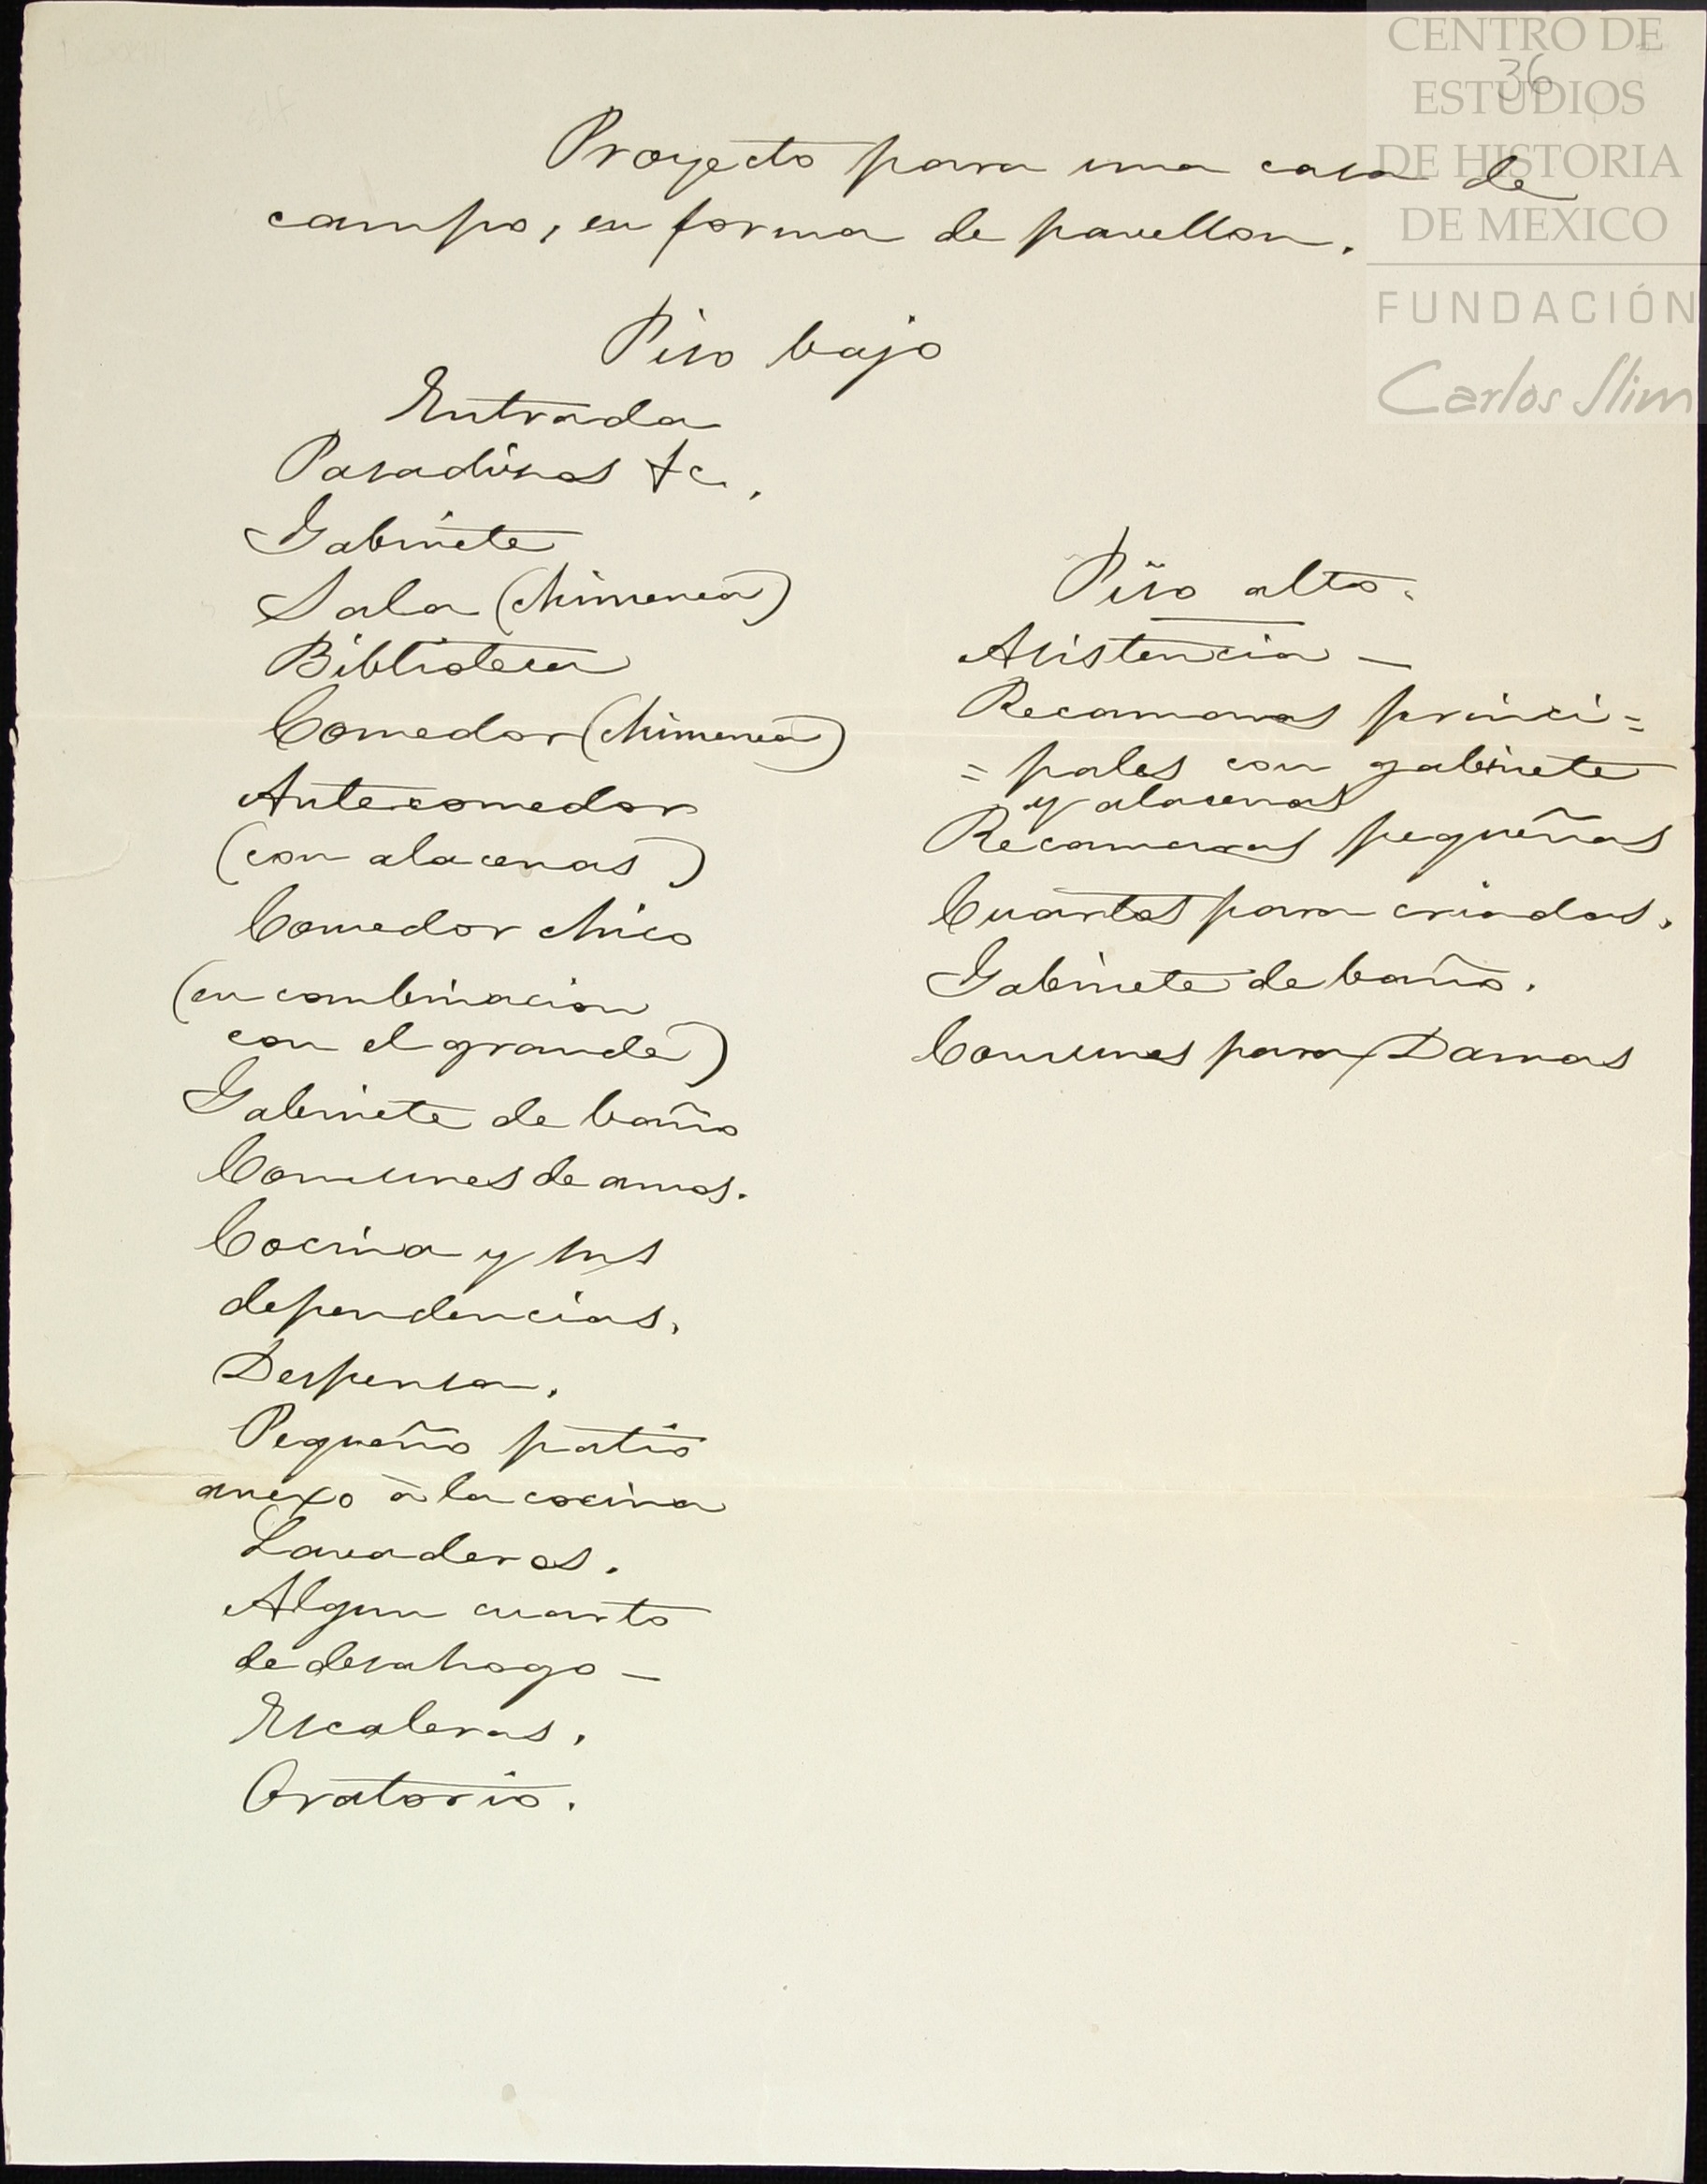 CENTRO DE
36
ESTUDIOS
DE HISTORIA
DE MEXICO
FUNDACIÓN
Carlos Slim
Proyecto para una casa de
campo, en forma de pavellon.
Piso bajo
Entrada
Pasadizos &c.
Gabinete
Sala (chimenea)
Biblioteca
Comedor (chimenea)
Antecomedor
(con alacenas)
Comedor chico
(en combinacion
con el grande)
Gabinete de baño
Comunes de amos.
Cocina y sus
dependencias.
Despensa.
Pequeño patio
anexo à la cocina
Lavaderos.
Algun cuarto
de desahogo —
Escaleras.
Oratorio.
Piso alto.
Asistencia —
Recamaras princi=
=pales con gabinete
y alacenas
Recamaras pequeñas
Cuartos para criadas.
Gabinete de baño.
Comunes para Damas